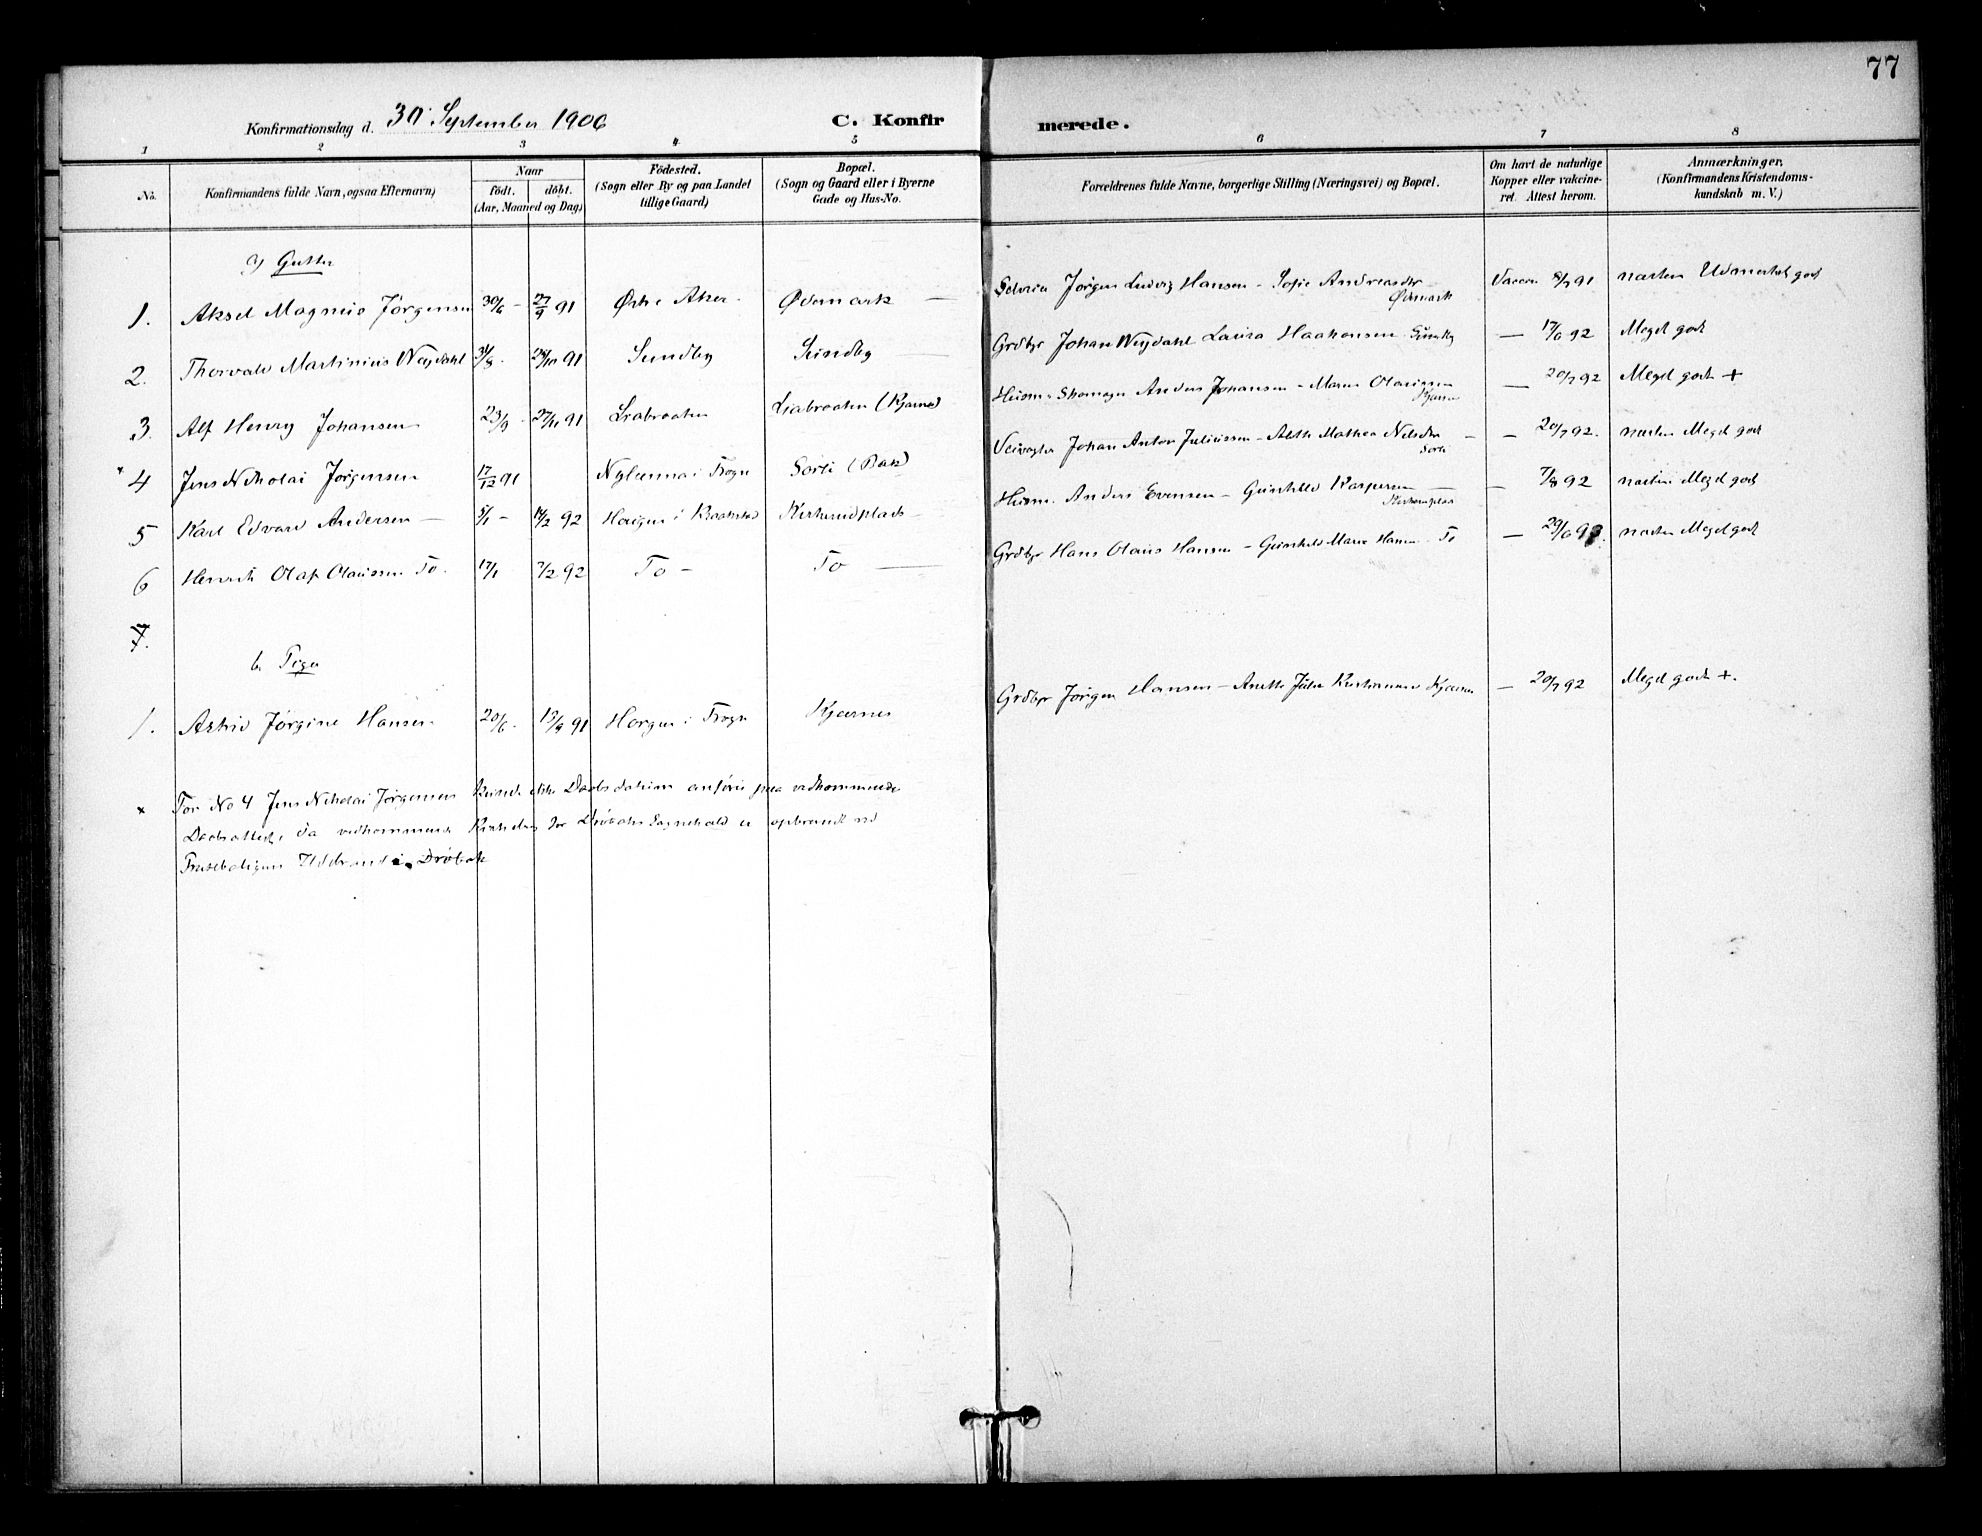 77
Konfirmationsdag d. 30 September 1906 C. Konfirmerede.
1 2 3 4 5 6 7 8
No. Konfirmandens fulde Navn, ogsaa Efternavn) Naar födt. döbt. (Aar, Maaned og Dag) Födested. (Sogn eller By og paa Landet tillige Gaard) Bopæl. (Sogn og Gaard eller i Byerne Gade og Hus-No. Forældrenes fulde Navne, borgerlige Stilling (Næringsvei) og Bopæl. Om havt de naturlige Kopper eller vakcineret. Attest herom. Anmærkninger, (Konfirmandens Kristendomskundskab m. V.)
a) Gutter
1. Aksel Magnus Jörgensen 30/6 – 27/9 91 Östre Aker Ödemark — Jörgen Ludvig Hansen – Sofie Andreasdtr Ödemark Vaccin 8/7 91 næsten Udmerket godt
2. Thorvald Martinius Weydahl 31/8 91 Sundby Sundby — Grdbgr Johan Weydahl Laura Haakensen Sundby — 17/6 92 Meget godt
3. Alf Henry Johansen 23/9 27/11 91 Liabraaten Liabraaten (Kjærnes) Husm. Skomager Anders Johansen – Maren Olaussen Kjærnes — 20/7 92 Meget godt +
× 4 Jens Nikolai Jörgensen 17/12 91 i Frogn (Bak) Veivogter Johan Anton Juliussen – Mathea Nilsdtr – 20/7 92. næsten Meget godt
5 Karl Edvard Andersen — 5/1 – 14/2 92 Haugen i Kraakstad Kirkerudplads – Husm. Anders Evensen – Gunhild Kaspersen Kirkerudplads — 7/8 92 næsten Meget godt
6 Henrik Olaf Olaussen To. 17/1 7/2 92 To – To — Grdbgr Hans Olaus Hansen – Gunhild Marie Hansen To — 29/6 9 næsten Meget godt
7.
b. Piger
1. Astrid Jörgine Hansen 20/6 13/9 91 Horgen i Frogn Kjærnes Grdbgr Jörgen Hansen – Anette Julie Kjærnes — 20/7 92 Meget godt +.
× For No 4 Jens Nikolai Jörgensen kunde ikke Daabsdatum anföres paa vedkommende
Daabsattest, da vedkommende Kirkebog for Dröbaks Sognekald er opbrændt ved
Præsteboligens Ildebrand i Dröbak